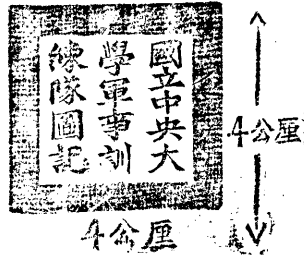 國立中央大
學軍事訓
練隊圖記
4公厘
4公厘